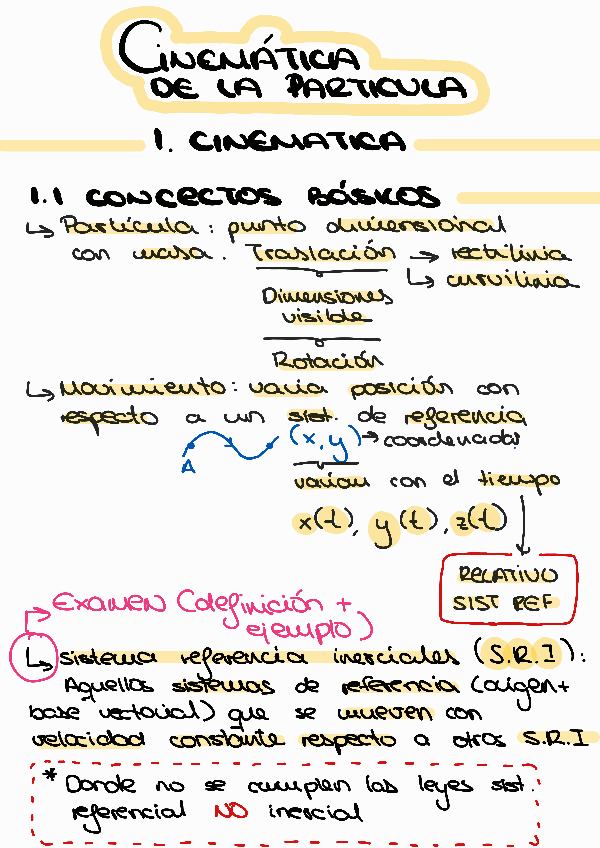 CINEMÁTICA
DE LA PARTICULA
1. CINEMATICA
1.1 CONCECTOS BÁSICOS
↳ Partícula: punto dimensional
con masa. Traslación → rectilinia
↳ curvilinia
Dimensiones
visible
Rotación
↳ Movimiento: varia posición con
respecto a un sist. de referencia
A (x,y) → coordenadas
varian con el tiempo
x(t), y(t), z(t)
RELATIVO
SIST REF
EXAMEN (definición +
ejemplo)
↳ sistema referencia inerciales (S.R.I):
Aquellos sistemas de referencia (origen+
base vectorial) que se mueven con
velocidad constante respecto a otros S.R.I
* Donde no se cumplen las leyes sist.
referencial NO inercial